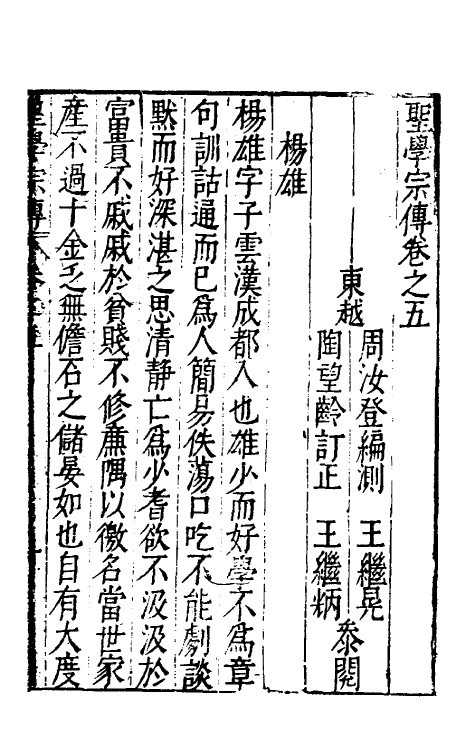 聖學宗傳卷之五
東越
周汝登編測 王繼晃
陶望齡訂正 王繼炳
叅閱
楊雄
楊雄字子雲漢成都人也雄少而好學不為章
句訓詁通而已為人簡易佚蕩口吃不能劇談
默而好深湛之思清靜亡為少耆欲不汲汲於
富貴不戚戚於貧賤不修廉隅以徼名當世家
產不過十金乏無儋石之儲晏如也自有大度
聖學宗傳 卷之五